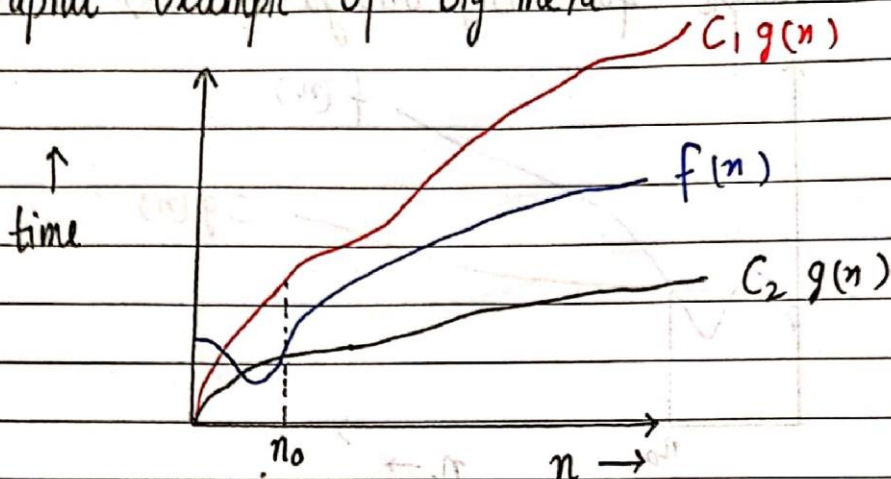 of
C₁ g(n)
f(n)
time
C₂ g(n)
n₀
n →